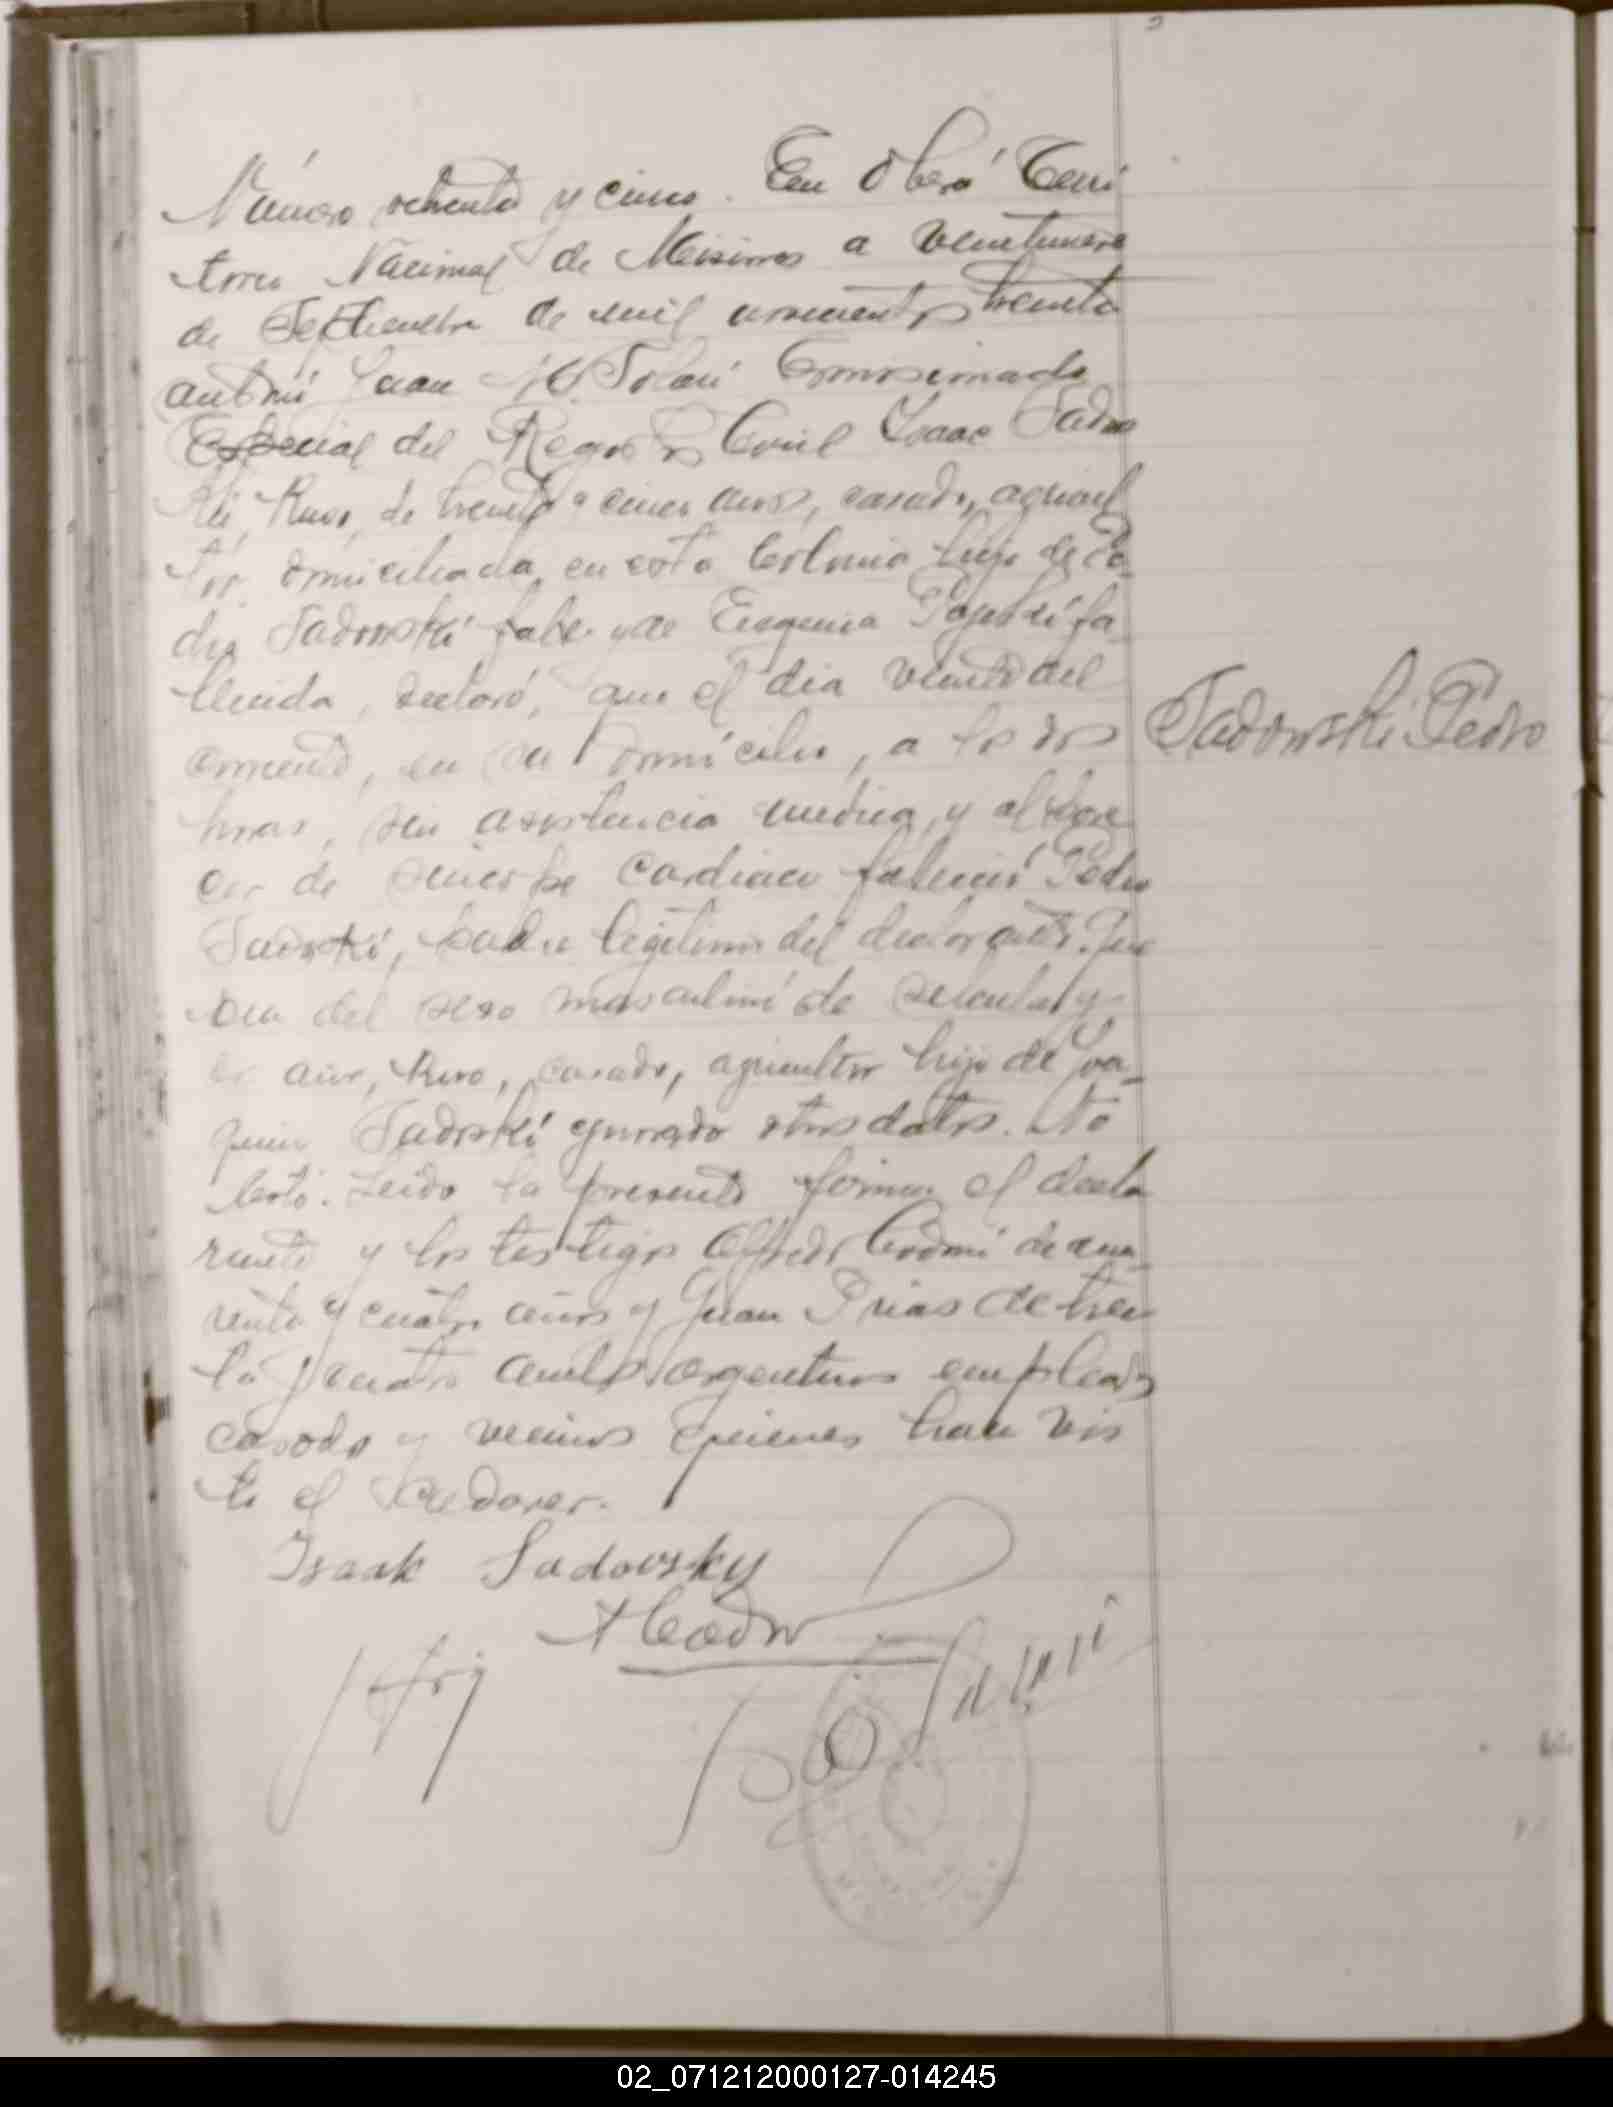 Número ochenta y cinco. En Oberá Terri
torio Nacional de Misiones a veintinueve
de Septiembre de mil novecientos treinta
ante mí Juan Solari Comisionado
Especial del Registro Civil Isaac Sadow
ski, Ruso, de treinta y cinco años, casado, agricul
tor domiciliado en esta Colonia hijo de Pe
dro Sadowski falle. y de Eugenia fa
llecida, declaró, que el dia veinte del
corriente, en su domicilio, a las dos
horas, sin asistencia médica, y al
de cardiaco falleció Pedro
Sadoski, padre legítimo del declarante. Que
era del sexo masculino de setenta y
años, Ruso, casado, agricultor hijo de Joa
quin Sadoski ignorado otros datos. No
testó. Leida la presente firman el decla
rante y los testigos Alfredo de cua
renta y cuatro años y Juan Frias de trein
ta y cuatro ambos argentinos empleados
casados y vecinos quienes han vis
to el cadaver.
Isaak Sadovsky
Sadowski Pedro
02_071212000127-014245